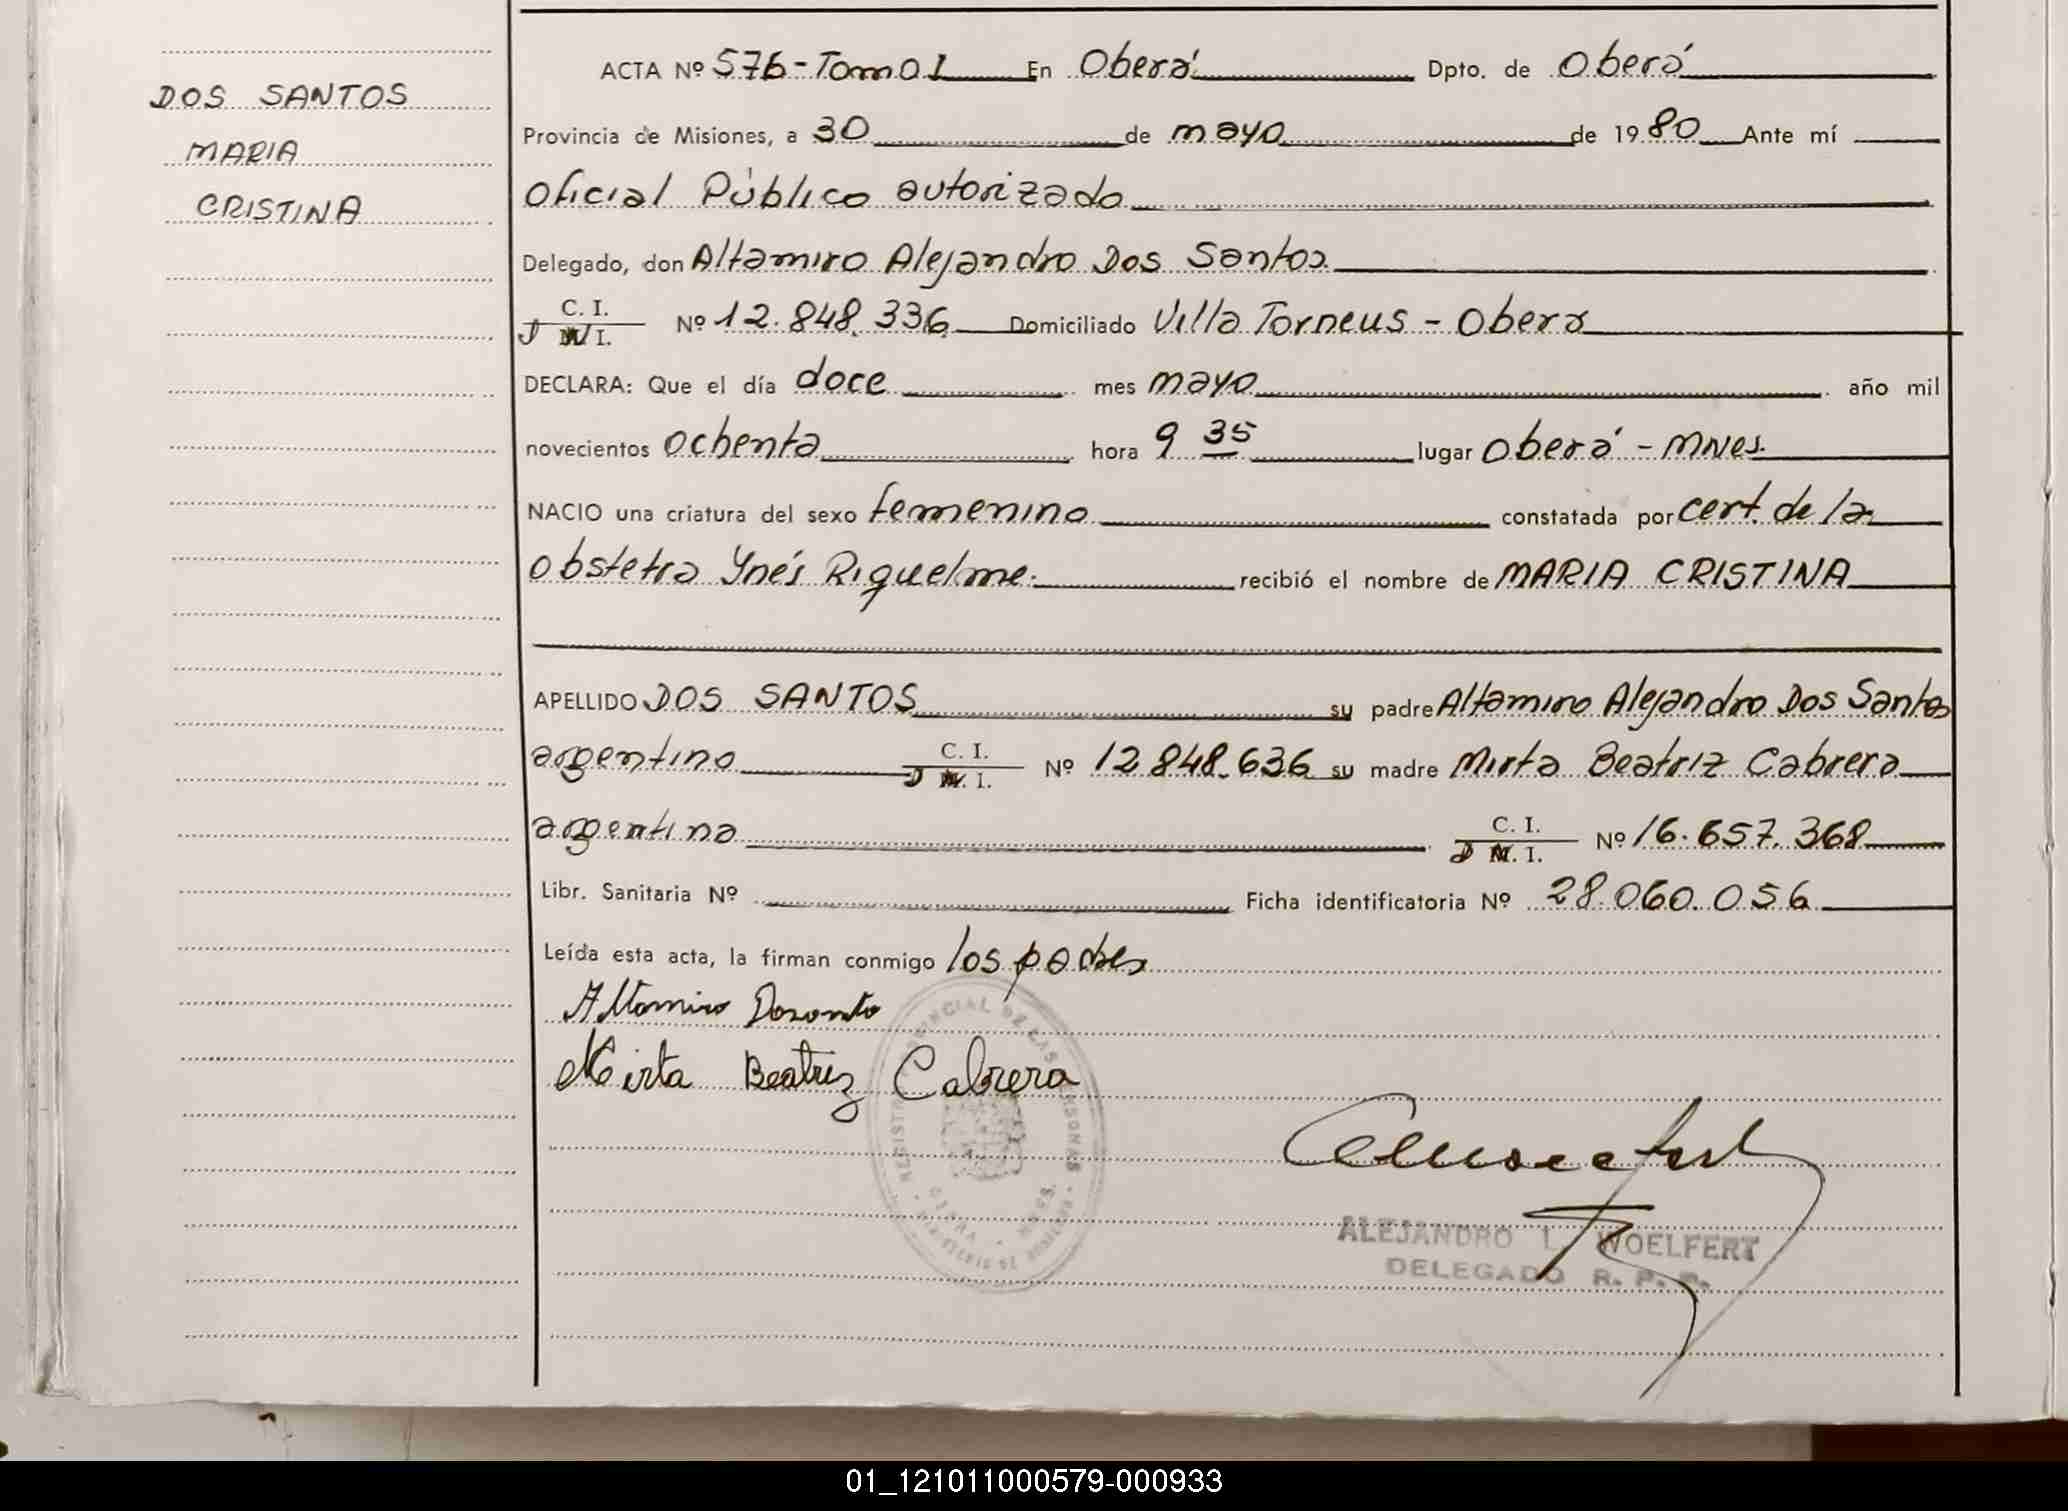 DOS SANTOS
MARIA
CRISTINA
ACTA Nº 576-Tomo I En Oberá Dpto. de Oberá
Provincia de Misiones, a 30 de mayo de 1980 Ante mí
Oficial Público autorizado
Delegado, don Altamiro Alejandro Dos Santos
C. I.
D N I. Nº 12.848.336 Domiciliado Villa Torneus - Obera
DECLARA: Que el día doce mes mayo año mil
novecientos ochenta hora 9 35 lugar Oberá - MNes.
NACIO una criatura del sexo femenino constatada por cert. de la
Obstetra Ynés Riquelme. recibió el nombre de MARIA CRISTINA
APELLIDO DOS SANTOS su padre Altamiro Alejandro Dos Santos
argentino C. I. D N. I. Nº 12.848.636 su madre Mirta Beatriz Cabrera
argentina C. I. D N. I. Nº 16.657.368
Libr. Sanitaria Nº Ficha identificatoria Nº 28.060.056
Leída esta acta, la firman conmigo los padres
Altamiro Dosanto
Mirta Beatriz Cabrera
ALEJANDRO L. WOELFERT
DELEGADO R. P. P.
01_121011000579-000933